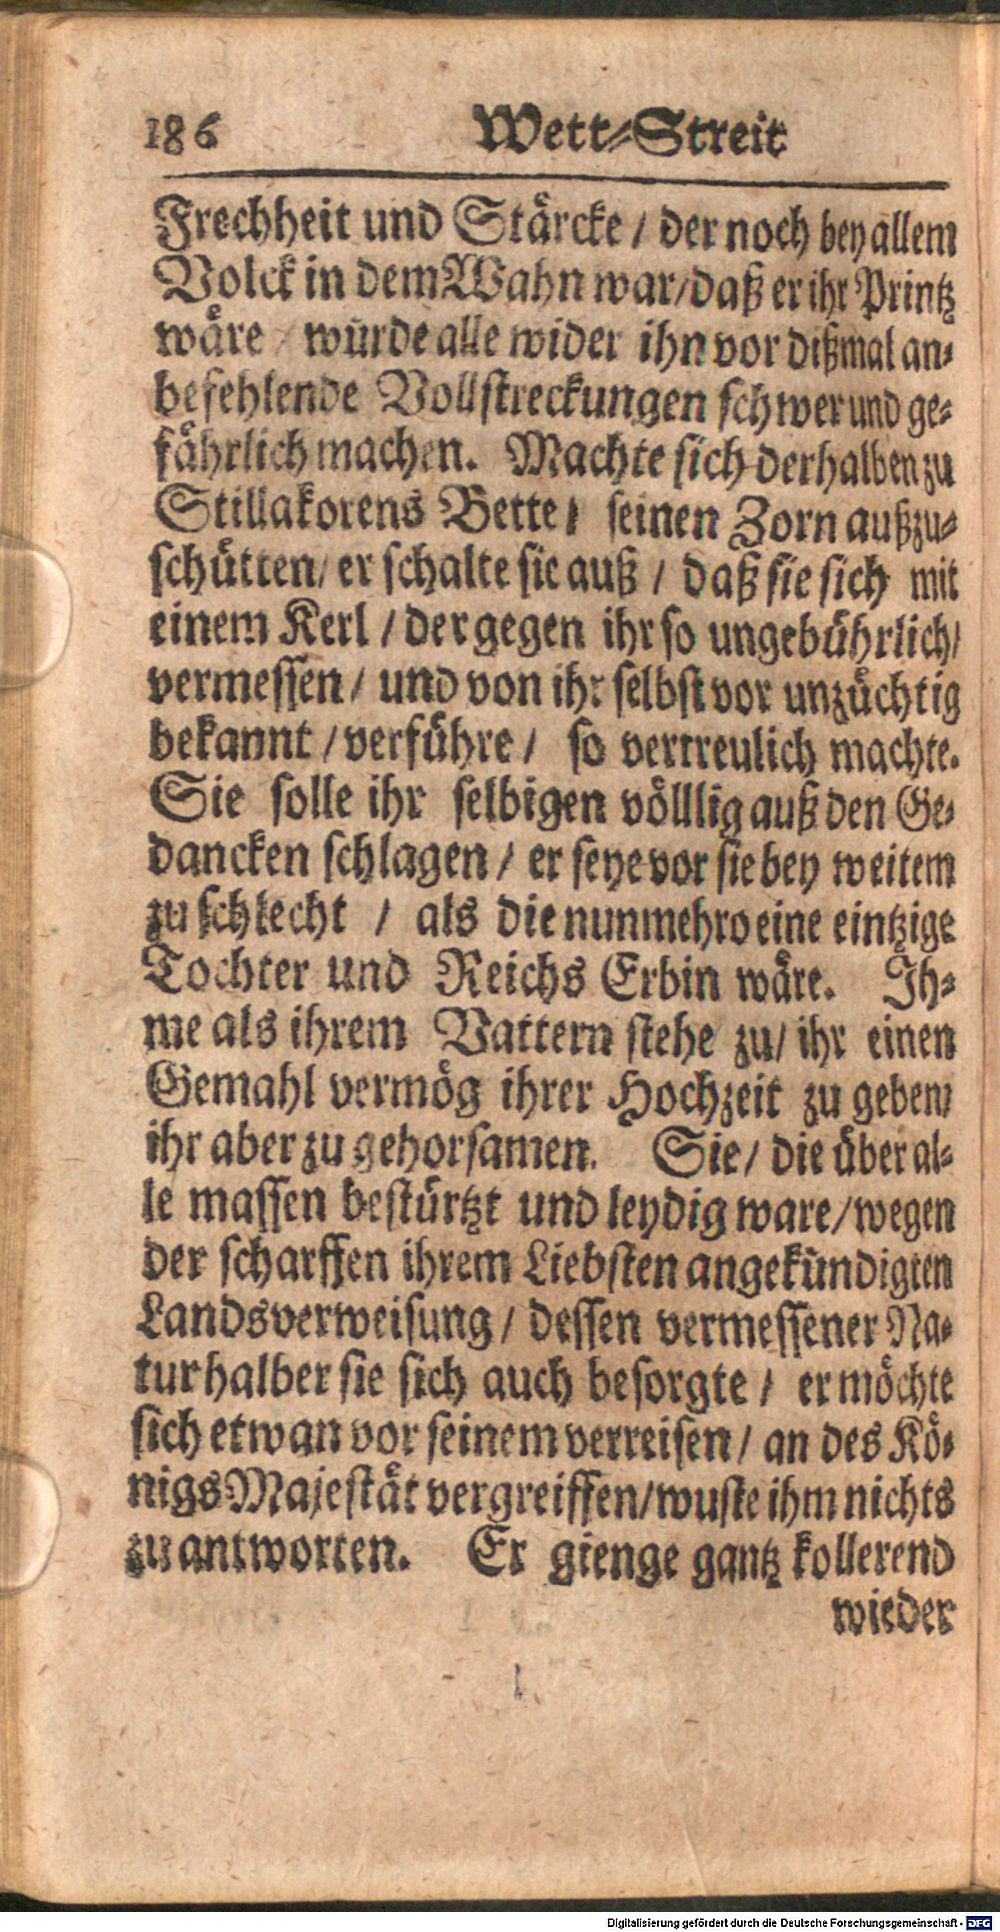 186 Wett-Streit
Frechheit und Stärcke / der noch bey allem
Volck in dem Wahn war/daß er ihr Printz
wäre / würde alle wider ihn vor dißmal an-
befehlende Vollstreckungen schwer und ge-
fährlich machen. Machte sich derhalben zu
Stillakorens Bette / seinen Zorn außzu-
schütten/ er schalte sie auß / daß sie sich mit
einem Kerl / der gegen ihr so ungebührlich/
vermessen / und von ihr selbst vor unzüchtig
bekannt / verführe / so vertreulich machte.
Sie solle ihr selbigen völllig auß den Ge-
dancken schlagen / er seye vor sie bey weitem
zu schlecht / als die nunmehro eine eintzige
Tochter und Reichs Erbin wäre. Ih-
me als ihrem Vattern stehe zu/ ihr einen
Gemahl vermög ihrer Hochzeit zu geben/
ihr aber zu gehorsamen. Sie / die über al-
le massen bestürtzt und leydig ware/wegen
der scharffen ihrem Liebsten angekündigten
Landsverweisung / dessen vermessener Na-
tur halber sie sich auch besorgte / er möchte
sich etwan vor seinem verreisen / an des Kö-
nigs Majestät vergreiffen/wuste ihm nichts
zu antworten. Er gienge gantz kollerend
wieder
Digitalisierung gefördert durch die Deutsche Forschungsgemeinschaft - DFG